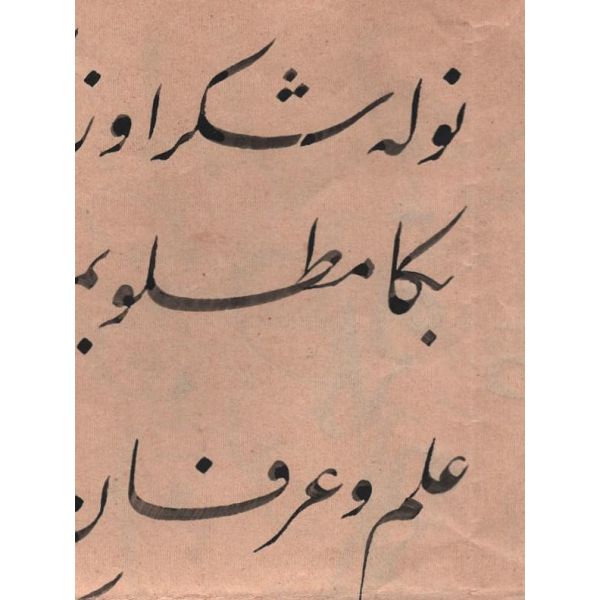 نوله شكر اوز
بكا مطلوبم
علم و عرفان